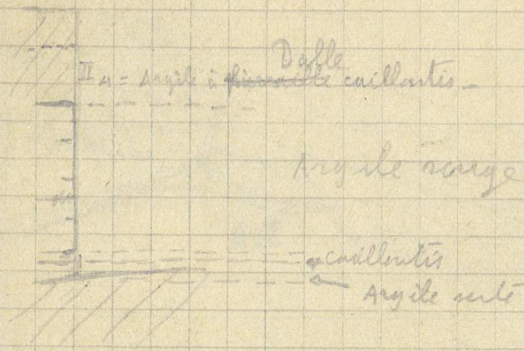 Dalle
II 4 = Argile à cailloutis -
Argile rouge
cailloutis
Argile verte